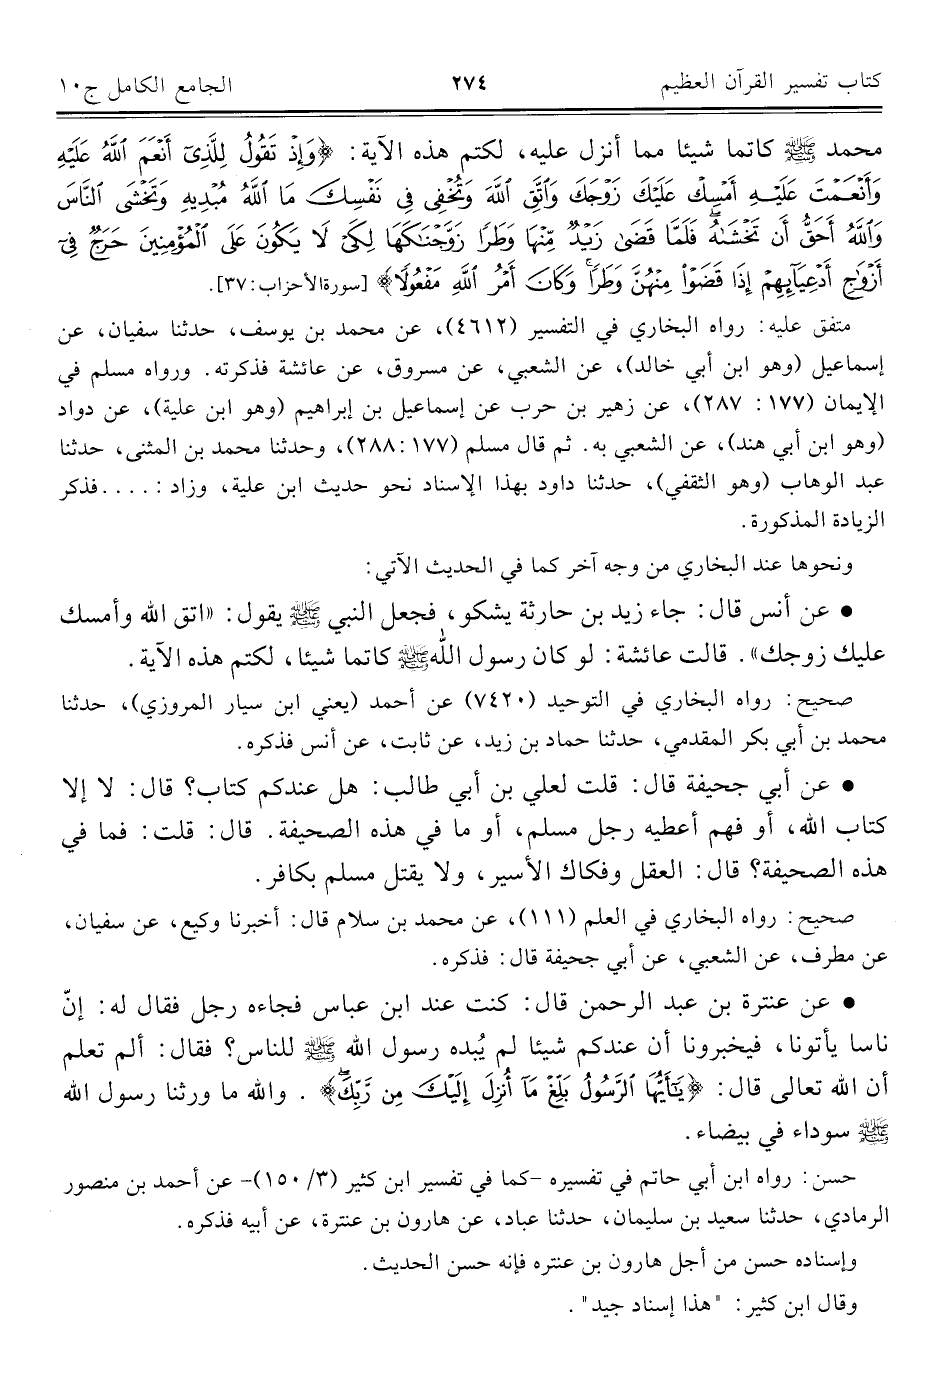 كتاب تفسير القرآن العظيم ٢٧٤ الجامع الكامل ج١٠
محمد ﷺ كاتما شيئا مما أنزل عليه، لكتم هذه الآية: ﴿وَإِذْ تَقُولُ لِلَّذِىٓ أَنْعَمَ ٱللَّهُ عَلَيْهِ
وَأَنْعَمْتَ عَلَيْهِ أَمْسِكْ عَلَيْكَ زَوْجَكَ وَٱتَّقِ ٱللَّهَ وَتُخْفِى فِى نَفْسِكَ مَا ٱللَّهُ مُبْدِيهِ وَتَخْشَى ٱلنَّاسَ
وَٱللَّهُ أَحَقُّ أَن تَخْشَىٰهُ ۖ فَلَمَّا قَضَىٰ زَيْدٌ مِّنْهَا وَطَرًا زَوَّجْنَٰكَهَا لِكَىْ لَا يَكُونَ عَلَى ٱلْمُؤْمِنِينَ حَرَجٌ فِىٓ
أَزْوَٰجِ أَدْعِيَآئِهِمْ إِذَا قَضَوْا۟ مِنْهُنَّ وَطَرًا ۚ وَكَانَ أَمْرُ ٱللَّهِ مَفْعُولًا﴾ [سورة الأحزاب: ٣٧].
متفق عليه: رواه البخاري في التفسير (٤٦١٢)، عن محمد بن يوسف، حدثنا سفيان، عن
إسماعيل (وهو ابن أبي خالد)، عن الشعبي، عن مسروق، عن عائشة فذكرته. ورواه مسلم في
الإيمان (١٧٧: ٢٨٧)، عن زهير بن حرب عن إسماعيل بن إبراهيم (وهو ابن علية)، عن دواد
(وهو ابن أبي هند)، عن الشعبي به. ثم قال مسلم (١٧٧: ٢٨٨)، وحدثنا محمد بن المثنى، حدثنا
عبد الوهاب (وهو الثقفي)، حدثنا داود بهذا الإسناد نحو حديث ابن علية، وزاد: .... فذكر
الزيادة المذكورة.
ونحوها عند البخاري من وجه آخر كما في الحديث الآتي:
• عن أنس قال: جاء زيد بن حارثة يشكو، فجعل النبي ﷺ يقول: «اتق الله وأمسك
عليك زوجك». قالت عائشة: لو كان رسول الله ﷺ كاتما شيئا، لكتم هذه الآية.
صحيح: رواه البخاري في التوحيد (٧٤٢٠) عن أحمد (يعني ابن سيار المروزي)، حدثنا
محمد بن أبي بكر المقدمي، حدثنا حماد بن زيد، عن ثابت، عن أنس فذكره.
• عن أبي جحيفة قال: قلت لعلي بن أبي طالب: هل عندكم كتاب؟ قال: لا إلا
كتاب الله، أو فهم أعطيه رجل مسلم، أو ما في هذه الصحيفة. قال: قلت: فما في
هذه الصحيفة؟ قال: العقل وفكاك الأسير، ولا يقتل مسلم بكافر.
صحيح: رواه البخاري في العلم (١١١)، عن محمد بن سلام قال: أخبرنا وكيع، عن سفيان،
عن مطرف، عن الشعبي، عن أبي جحيفة قال: فذكره.
• عن عنترة بن عبد الرحمن قال: كنت عند ابن عباس فجاءه رجل فقال له: إنّ
ناسا يأتونا، فيخبرونا أن عندكم شيئا لم يُبده رسول الله ﷺ للناس؟ فقال: ألم تعلم
أن الله تعالى قال: ﴿يَٰٓأَيُّهَا ٱلرَّسُولُ بَلِّغْ مَآ أُنزِلَ إِلَيْكَ مِن رَّبِّكَ ۖ﴾ . والله ما ورثنا رسول الله
ﷺ سوداء في بيضاء.
حسن: رواه ابن أبي حاتم في تفسيره -كما في تفسير ابن كثير (٣/ ١٥٠)- عن أحمد بن منصور
الرمادي، حدثنا سعيد بن سليمان، حدثنا عباد، عن هارون بن عنترة، عن أبيه فذكره.
وإسناده حسن من أجل هارون بن عنتره فإنه حسن الحديث.
وقال ابن كثير: "هذا إسناد جيد".